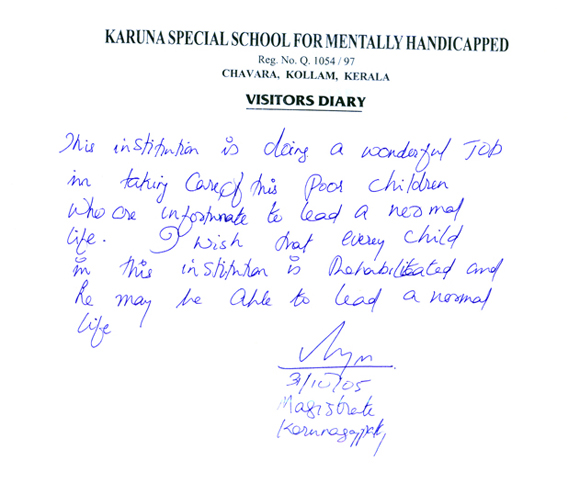 KARUNA SPECIAL SCHOOL FOR MENTALLY HANDICAPPED
Reg. No. Q. 1054 / 97
CHAVARA, KOLLAM, KERALA
VISITORS DIARY
This institution is doing a wonderful Job
in taking care of this poor children
who are infortunate to lead a normal
life. I wish that every child
in this institution is Rehabilitated and
he may be able to lead a normal
life
31/10/05
Magistrate
Karunagappally